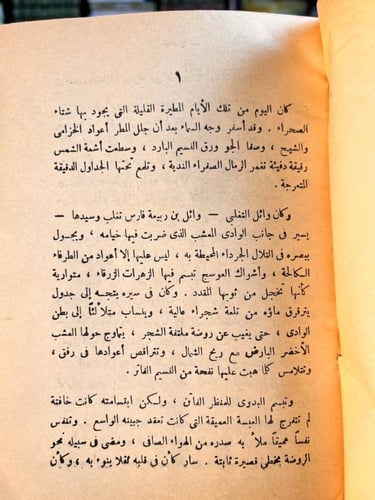 ١
كان اليوم من تلك الأيام المطيرة القليلة التى يجود بها شتاء
الصحراء . وقد أسفر وجه السماء بعد أن جلل المطر أعواد الخزامى
والشيح ، وصفا الجو ورق النسيم البارد ، وسطعت أشعة الشمس
رفيقة دفيئة تغمر الرمال الصفراء الندية ، وتلمع تحتها الجداول الدقيقة
المتعرجة .
وكان وائل التغلبى — وائل بن ربيعة فارس تغلب وسيدها —
يسير فى جانب الوادى المعشب الذى ضربت فيها خيامه ، ويجول
ببصره فى التلال الجرداء المحيطة به ، ليس عليها إلا أعواد من الطرفاء
الكالحة ، وأشواك العوسج تبسم فيها الزهرات الزرقاء ، متوارية
كأنها تخجل من ثوبها المقدد . وكان فى سيره يتجه إلى جدول
يترقرق ماؤه من تلعة شجراء عالية ، وينساب متلألئاً إلى بطن
الوادى ، حتى يغيب عن روضة ملتفة الشجر ، يتماوج حولها العشب
الأخضر البارض مع ريح الشمال ، وتتراقص أعوادها فى رفق ،
وتتلامس كلما هبت عليها نفحة من النسيم الفاتر .
وتبسم البدوى للمنظر الفاتن ، ولكن ابتسامته كانت خافتة
لم تنفرج لها العبسة العميقة التى كانت تعقد جبينه الواسع . وتنفس
نفساً عميقاً ملأ به صدره من الهواء الصافى ، ومضى فى سبيله نحو
الروضة بخطى قصيرة ثابتة . سار كأن فى قلبه ثقلا ينوء به ، وكأن